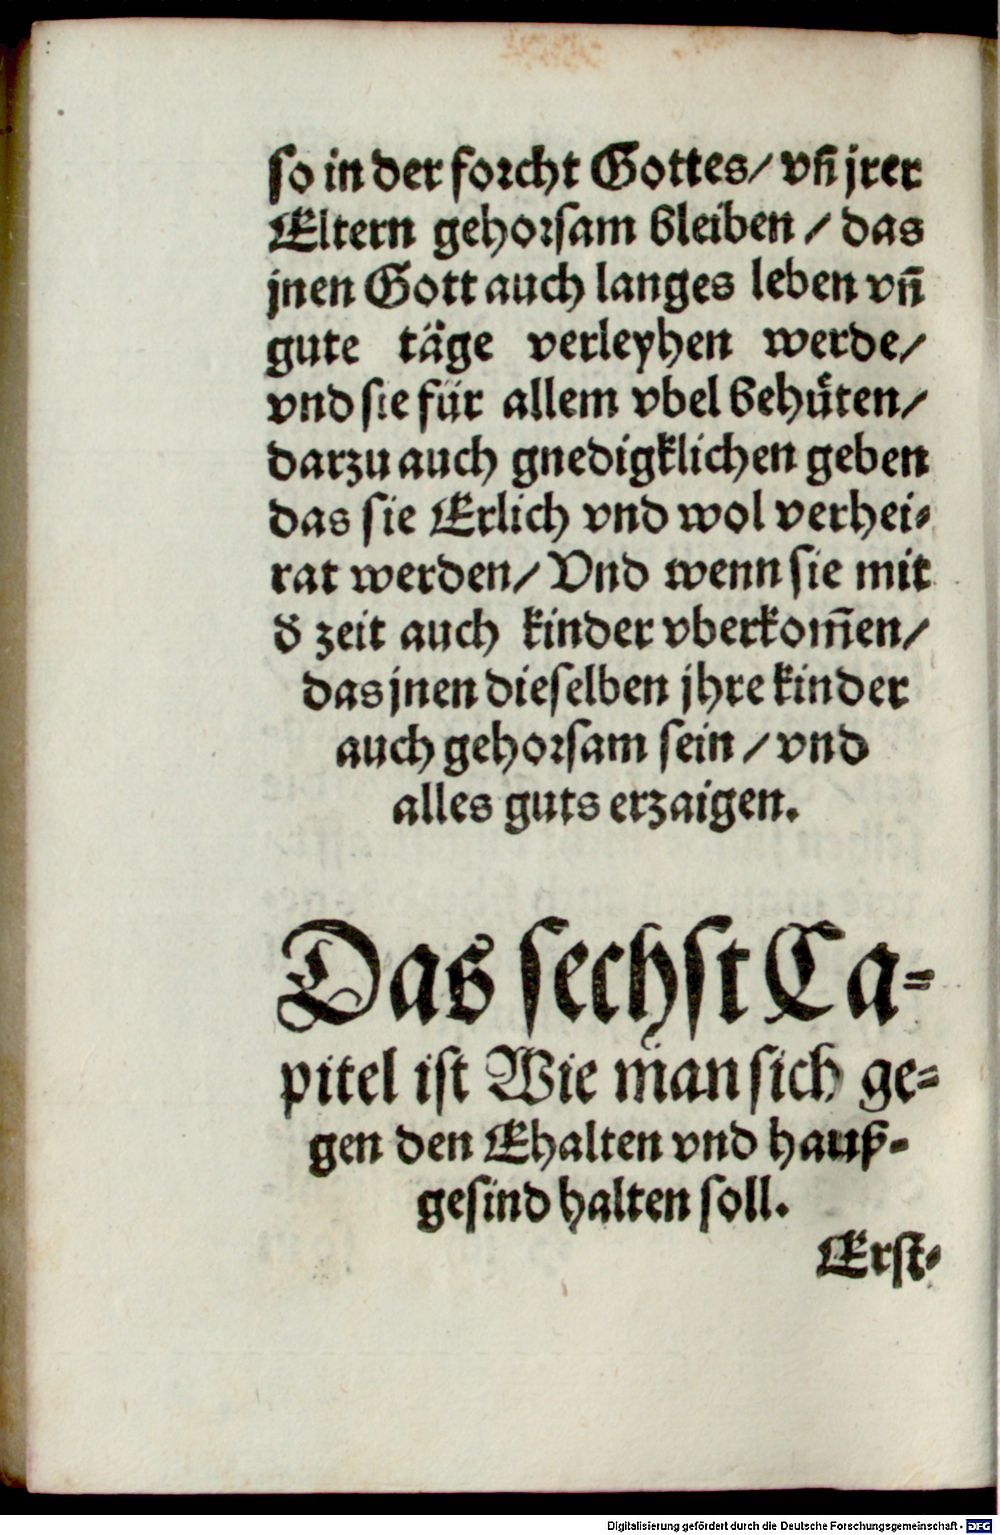 so in der forcht Gottes/ vñ jrer
Eltern gehorsam bleiben / das
jnen Gott auch langes leben vñ
gute täge verleyhen werde/
vnd sie für allem vbel behuͤten/
darzu auch gnedigklichen geben
das sie Erlich vnd wol verhei⸗
rat werden/ Vnd wenn sie mit
đ zeit auch kinder vberkom̄en/
das jnen dieselben jhre kinder
auch gehorsam sein / vnd
alles guts erzaigen.
Das sechst Ca⸗
pitel ist Wie man sich ge⸗
gen den Ehalten vnd hauß⸗
gesind halten soll.
Erst⸗
Digitalisierung gefördert durch die Deutsche Forschungsgemeinschaft - DFG